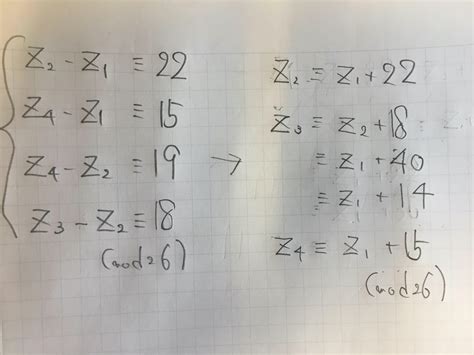 Z₂ - Z₁ ≡ 22
Z₄ - Z₁ ≡ 15
Z₄ - Z₂ ≡ 19
Z₃ - Z₂ ≡ 18
(mod 26)
→
Z₂ ≡ Z₁ + 22
Z₃ ≡ Z₂ + 18
≡ Z₁ + 40
≡ Z₁ + 14
Z₄ ≡ Z₁ + 15
(mod 26)